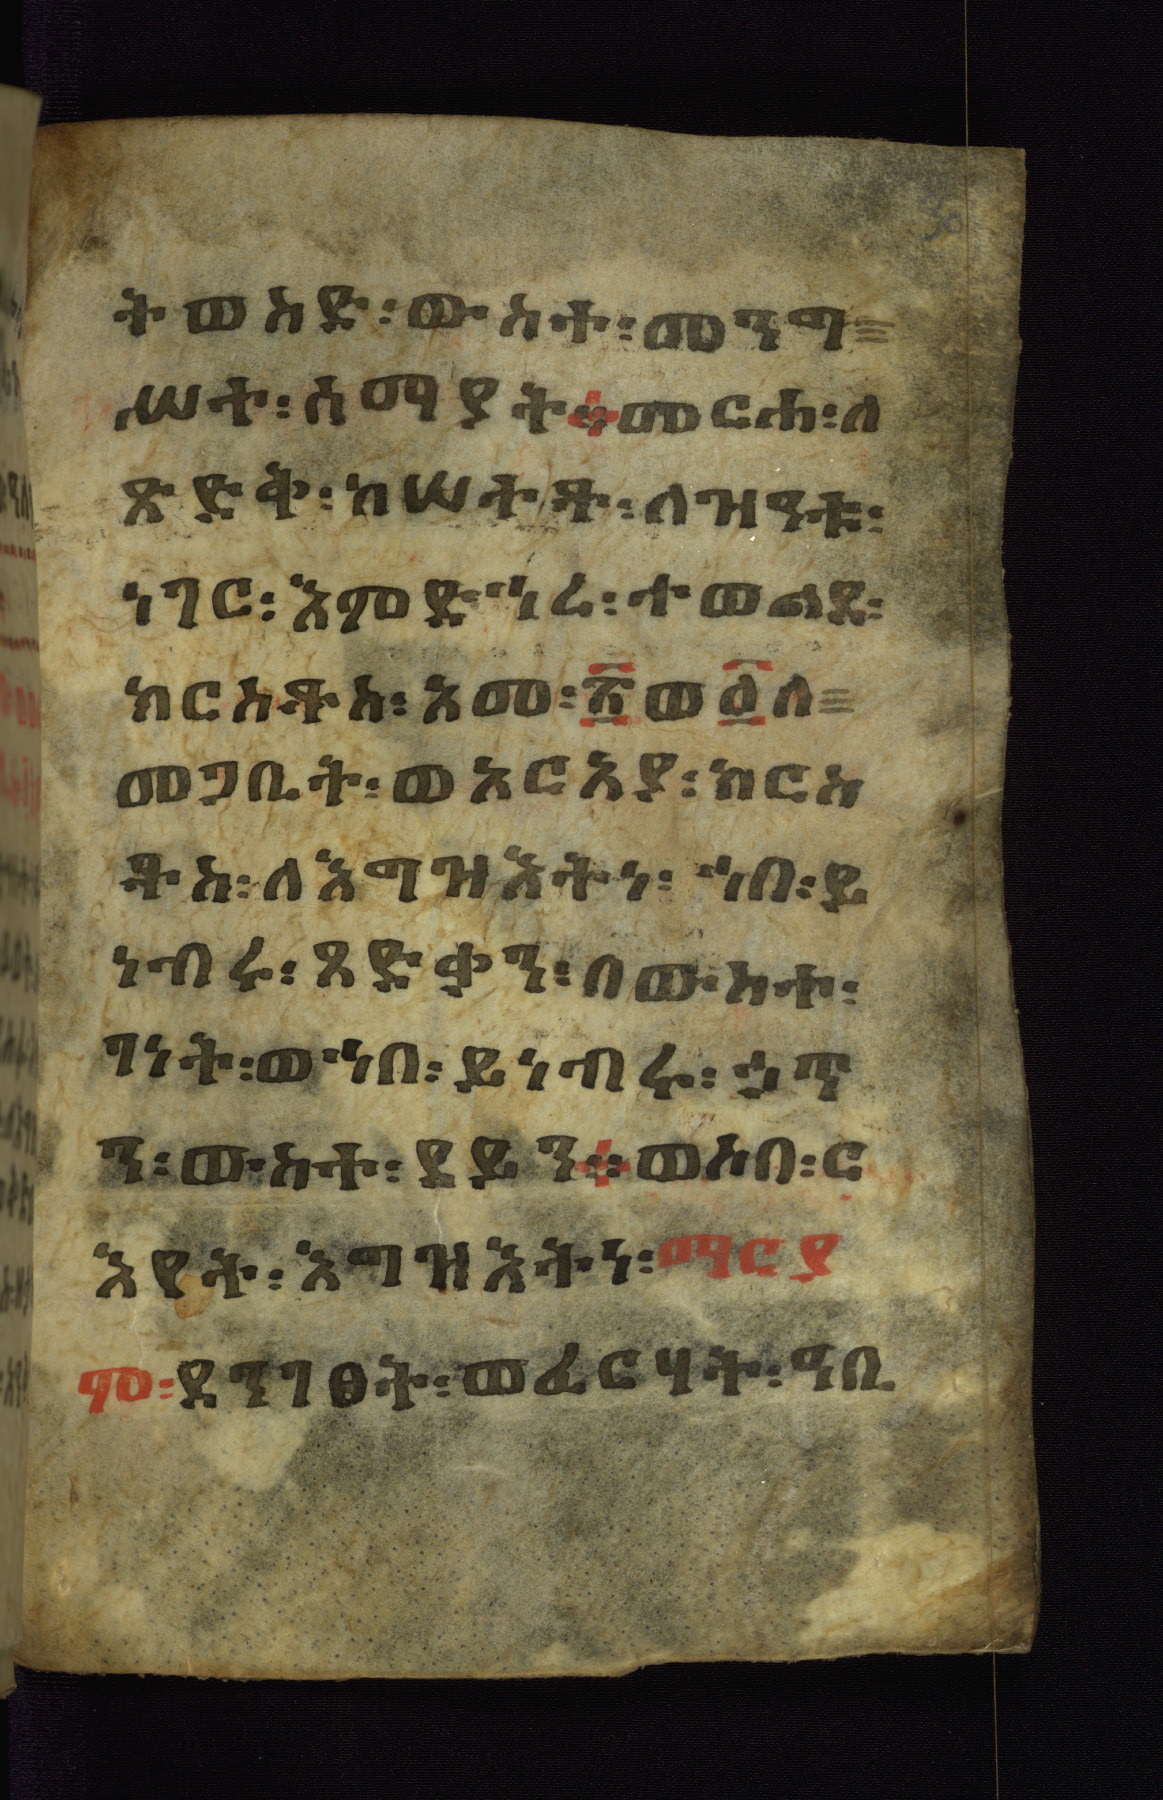 ትወስድ፡ውስተ፡መንግ
ሠተ፡ሰማያት፨መርሐ፡ለ
ጽድቅ፡ከሠተት፡ለዝንቱ፡
ነገር፡እምድኀረ፡ተወልደ፡
ክርስቶስ፡አመ፡፳ወ፬ለ
መጋቢት፡ወአርአያ፡ክርስ
ቶስ፡ለእግዝእትነ፡ኀበ፡ይ
ነብሩ፡ጻድቃን፡በውስተ፡
ገነት፡ወኀበ፡ይነብሩ፡ኃጥ
ን፡ውስተ፡ደይን፨ወሶበ፡ር
እየት፡እግዝእትነ፡ማርያ
ም፡ደንገፀት፡ወፈርሃት፡ዓቢ
30